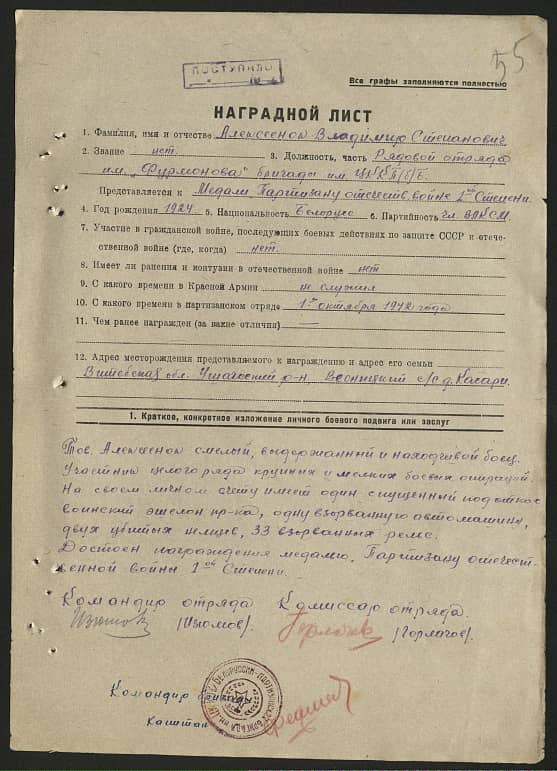 55
ПОСТУПИЛО
Все графы заполняются полностью
НАГРАДНОЙ ЛИСТ
1. Фамилия, имя и отчество Алексеенок Владимир Степанович
2. Звание нет. 3. Должность, часть Рядовой отряда
им. „Фурмонова" бригады им. ЦККП/б/Б.
Представляется к Медали Партизану отечеств. войне 1ой Степени.
4. Год рождения 1924 5. Национальность Белорус 6. Партийность чл. ВЛКСМ.
7. Участие в гражданской войне, последующих боевых действиях по защите СССР и отече-
ственной войне (где, когда) нет.
8. Имеет ли ранения и контузии в отечественной войне нет
9. С какого времени в Красной Армии не служил
10. С какого времени в партизанском отряде 1го октября 1942 года
11. Чем ранее награжден (за какие отличия) —
12. Адрес месторождения представляемого к награждению и адрес его семьи
Витебская обл. Ушачский р-н, с/с д. Косари.
1. Краткое, конкретное изложение личного боевого подвига или заслуг
Тов. Алексеенок смелый, выдержанный и находчивый боец.
Участник целого ряда крупных и мелких боевых операций.
На своем личном счету имеет один спущенный под откос
воинский эшелон пр-ка, одну взорванную автомашину,
двух убитых немцев, 33 взорванных рельс.
Достоен награждения медалю „Партизану отечест-
венной войны 1ой Степени.
Командир отряда Комиссар отряда.
(Изюмов) (Горлачов).
Командир бригады